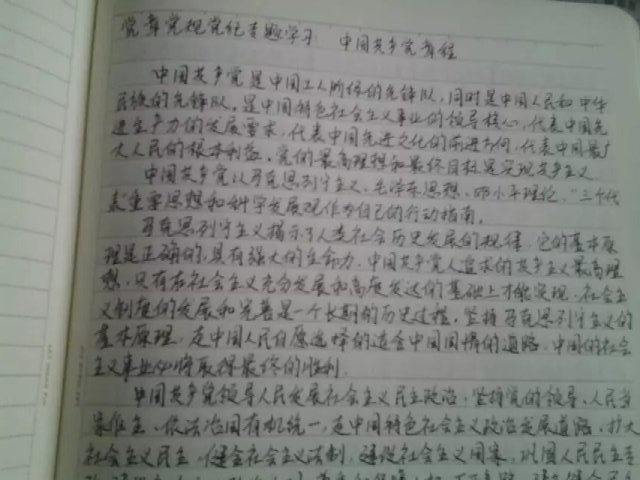 党章党规党纪专题学习 中国共产党章程
中国共产党是中国工人阶级的先锋队,同时是中国人民和中华
民族的先锋队,是中国特色社会主义事业的领导核心,代表中国先
进生产力的发展要求,代表中国先进文化的前进方向,代表中国最广
大人民的根本利益。党的最高理想和最终目标是实现共产主义
中国共产党以马克思列宁主义、毛泽东思想、邓小平理论、“三个代
表”重要思想和科学发展观作为自己的行动指南。
马克思列宁主义揭示了人类社会历史发展的规律,它的基本原
理是正确的,具有强大的生命力。中国共产党人追求的共产主义最高理
想,只有在社会主义充分发展和高度发达的基础上才能实现。社会主
义制度的发展和完善是一个长期的历史过程。坚持马克思列宁主义的
基本原理,走中国人民自愿选择的适合中国国情的道路,中国的社会
主义事业必将取得最终的胜利.
中国共产党领导人民发展社会主义民主政治,坚持党的领导、人民当
家作主、依法治国有机统一,走中国特色社会主义政治发展道路,扩大
社会主义民主,健全社会主义法制,建设社会主义国家,巩固人民民主专